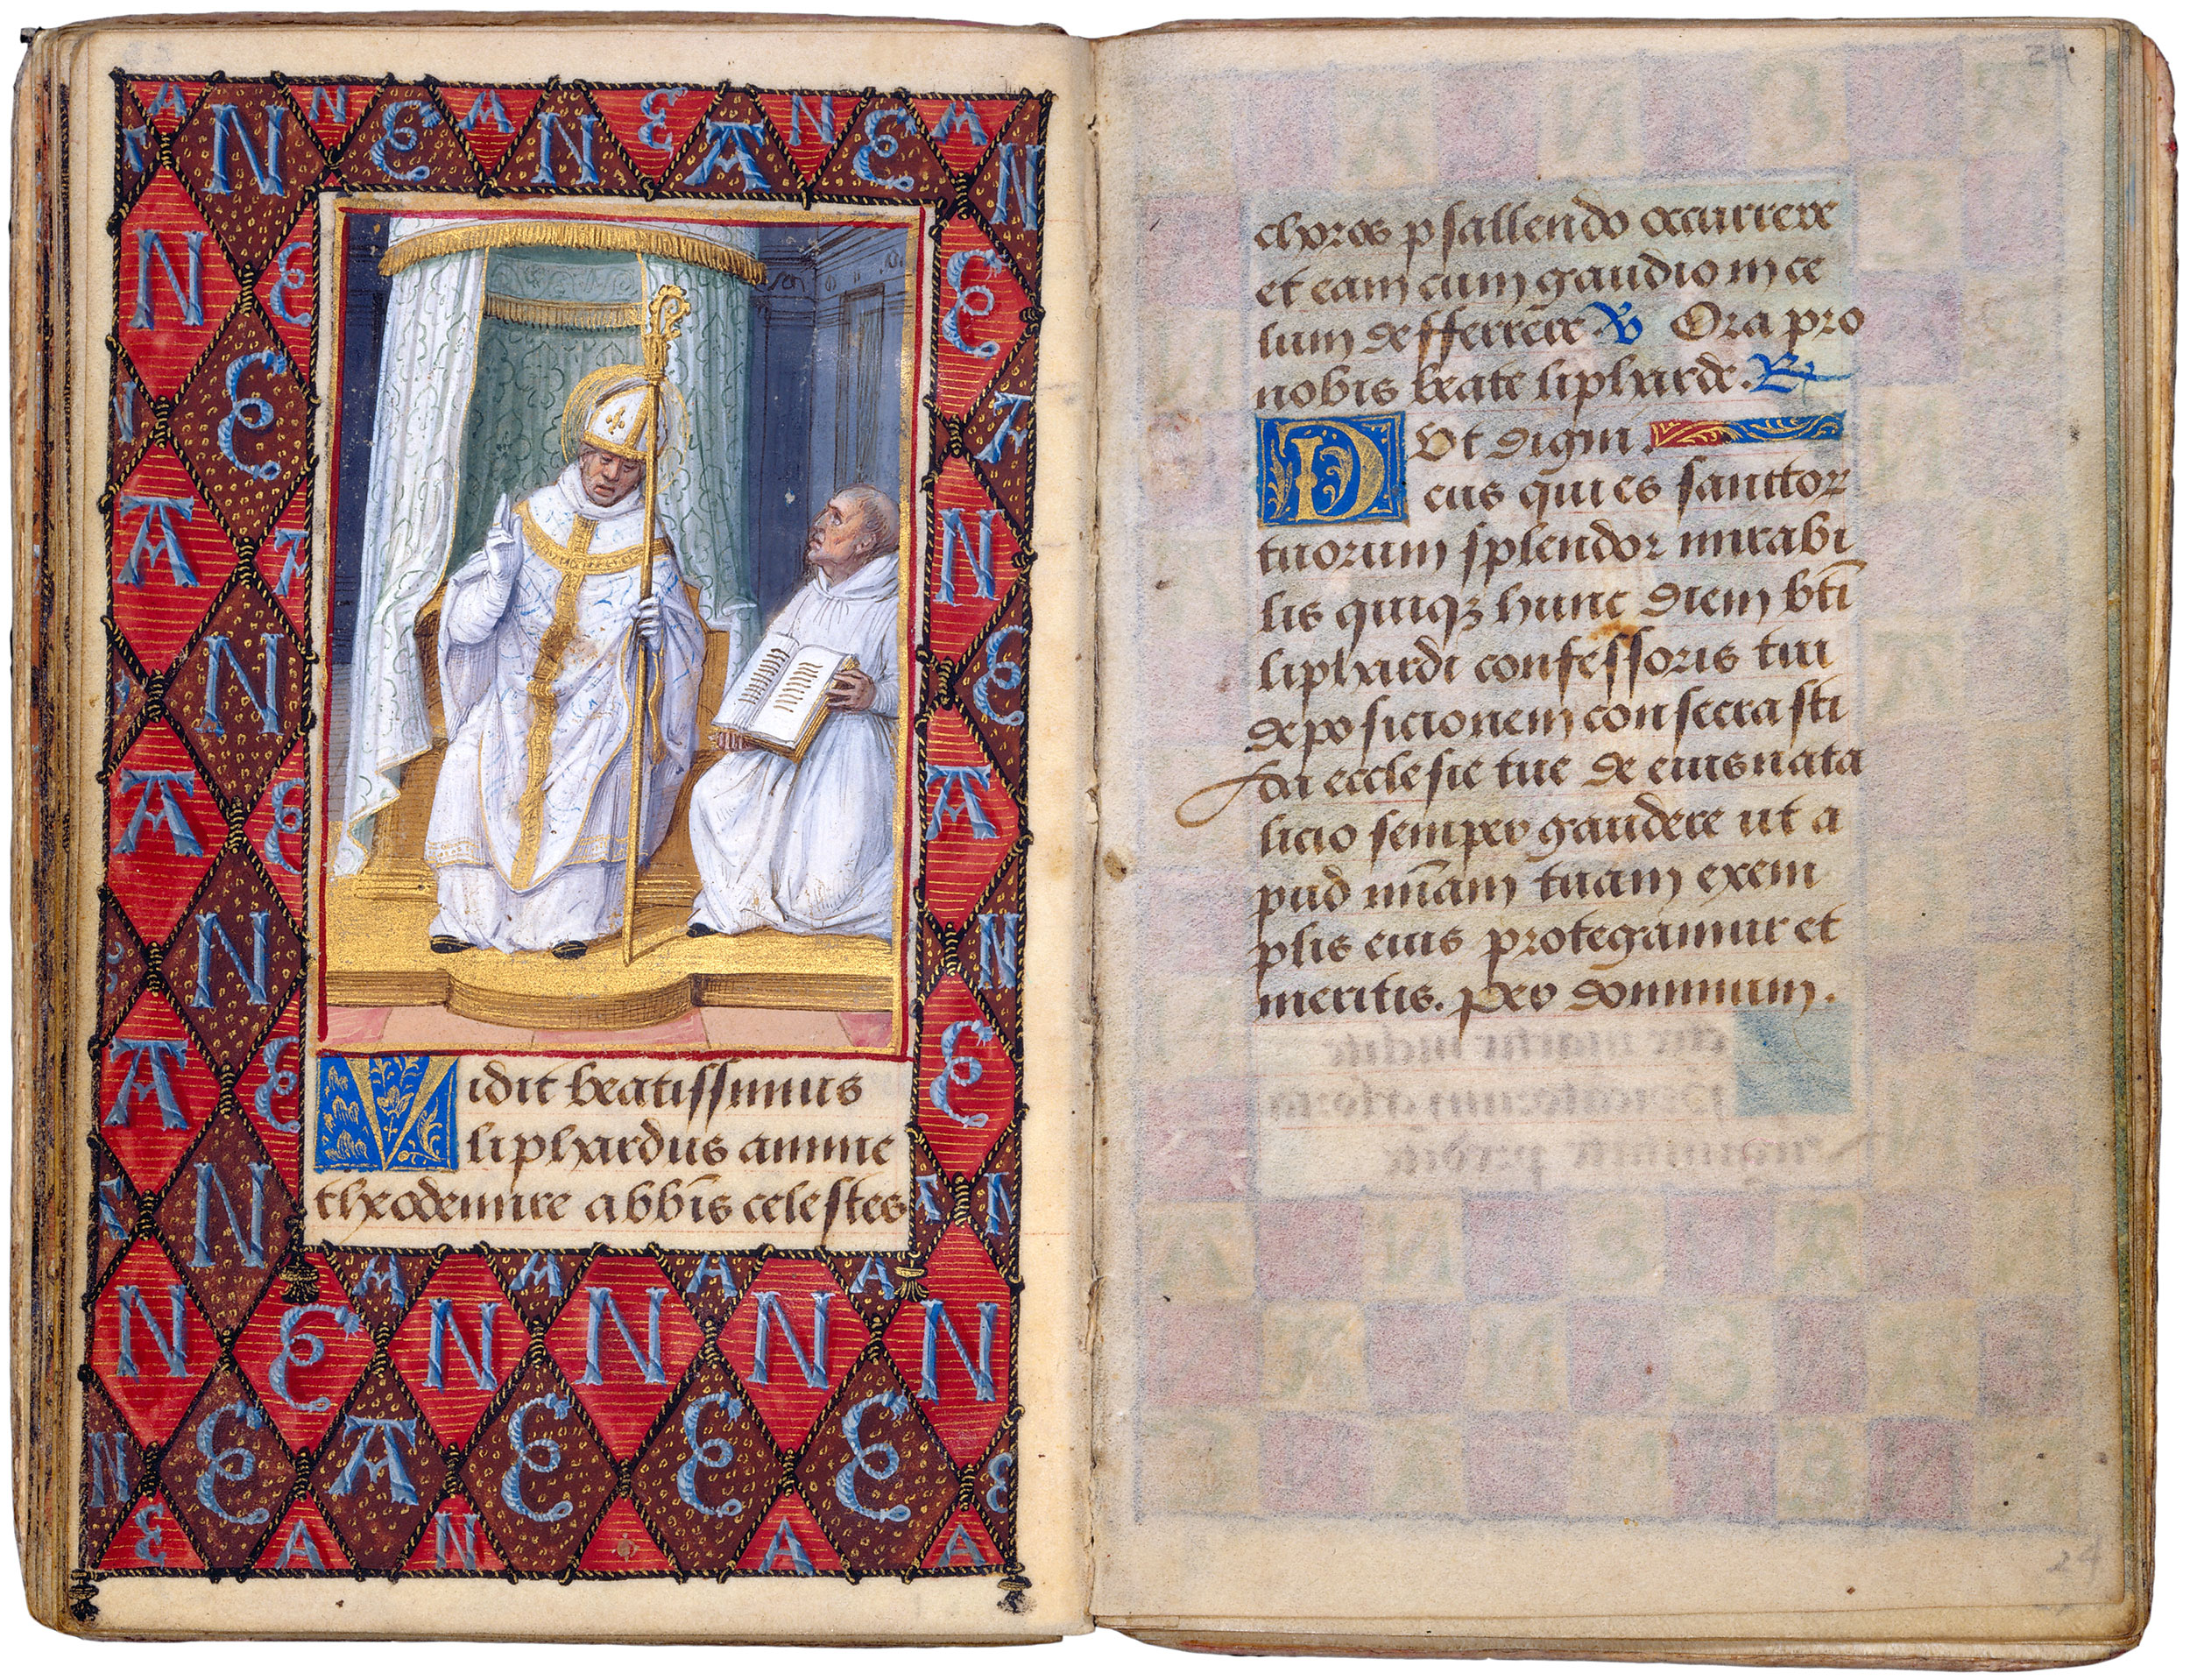 Vidit beatissimus
liphardus anime
theodemire abb̄is celestes
24
choros psallendo occurrere
et eam cum gaudio in ce
lum defferrere ℣ Ora pro
nobis beate liphrde. ℟
Vt digni.
Deus qui es sanctor
tuorum splendor mirabi
lis quiqꝫ hunc diem bt̄i
liphardi confessoris tui
deposicionem consecrasti
da ecclesie tue de eius nata
licio semper gaudere ut a
pud mīam tuam exem
plis eius protegamur et
meritis. Per dominum.
24